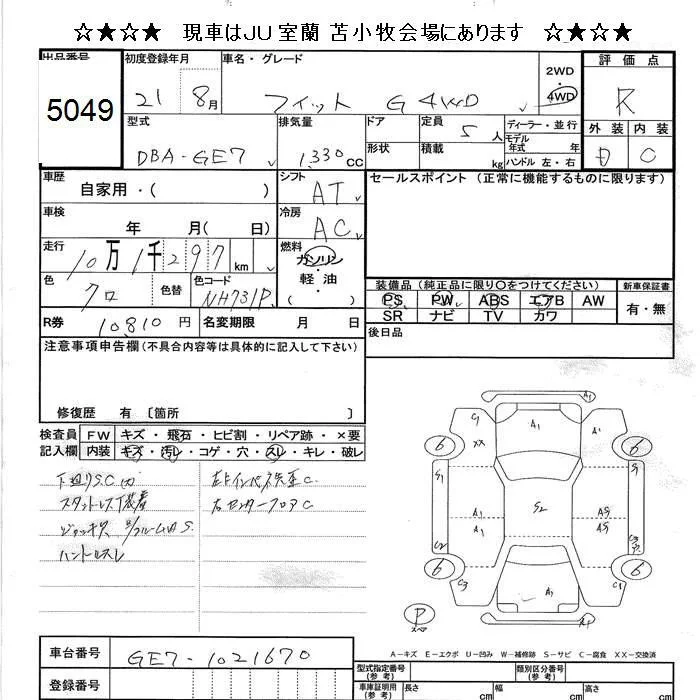 ☆★☆★ 現車はJU室蘭 苫小牧会場にあります ☆★☆★
出品番号 初度登録年月 車名・グレード 2WD 4WD 評価点
5049 21 8月 フィット G 4WD R
型式 排気量 ドア 定員 5人 ディーラー・並行 外装 内装
DBA-GE7 1,330CC 形状 積載 kg モデル年式 年 ハンドル 左・右 D C
車歴 自家用・( ) シフト AT セールスポイント (正常に機能するものに限ります)
車検 年 月( 日) 冷房 AC
走行 10万1千297 km 燃料 ガソリン
軽・油
( )
色 クロ 色替 色コード NH731P 装備品(純正品に限り○をつけてください) 新車保証書
PS PW ABS エアB AW 有・無
SR ナビ TV カワ
R券 10,810円 名変期限 月 日 後日品
注意事項申告欄(不具合内容等は具体的に記入して下さい)
修復歴 有 〔箇所 〕
検査員 FW キズ・飛石・ヒビ割・リペア跡・×要
記入欄 内装 キズ・汚レ・コゲ・穴・スレ・キレ・破レ
下廻りS.C
スタットレス1本着
ハンドルスレ
右センターフロアC
C1 A1 A1 XX 6 6
S1 S1 A1 A1 S2 A5 A5 C2 C3
6 6 C3 A1 A1 C1
P スペア
A-キズ E-エクボ U-凹み W-補修跡 S-サビ C-腐食 XX-交換済
車台番号 GE7-1021670
登録番号
型式指定番号(参考) 類別区分番号(参考)
車庫証明用(参考) 長さ cm 幅 cm 高さ cm